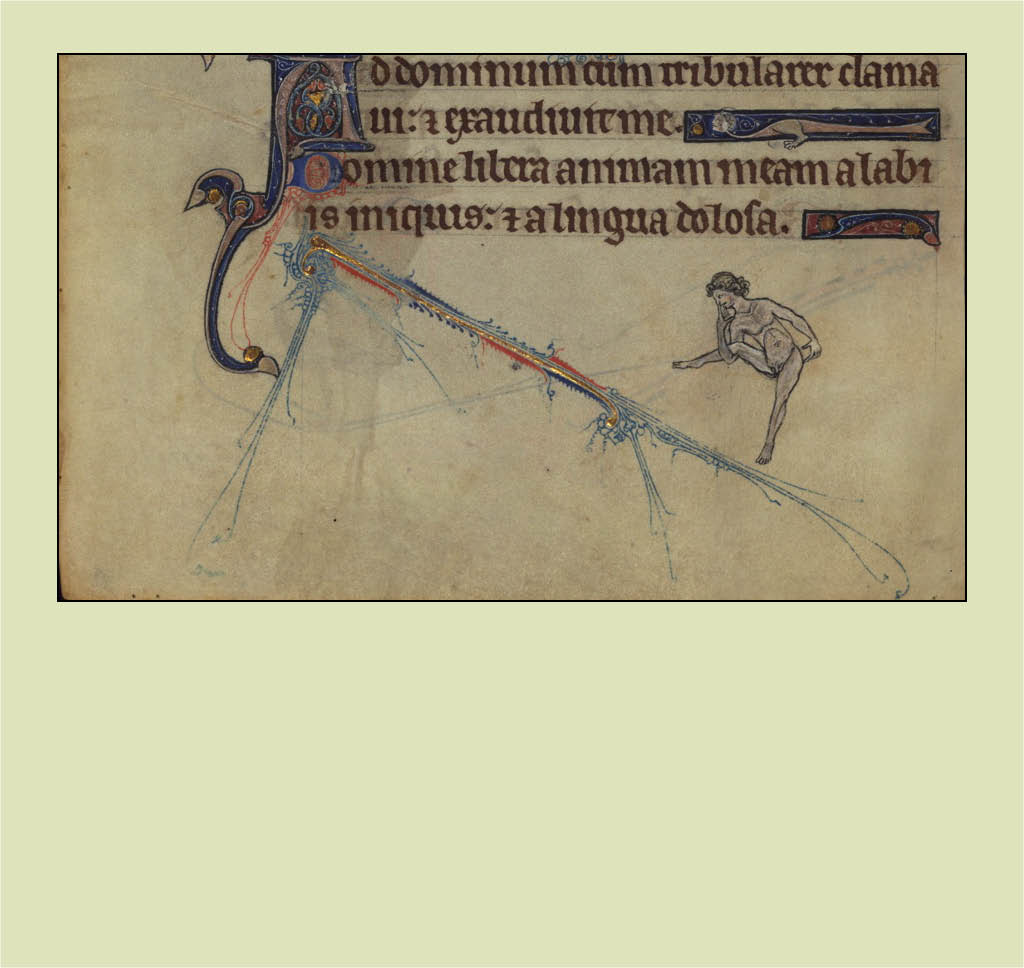 Ad dominum cum tribularer clama
ui: ⁊ exaudiuit me.
Domine libera animam meam a labi
is iniquis: ⁊ a lingua dolosa.